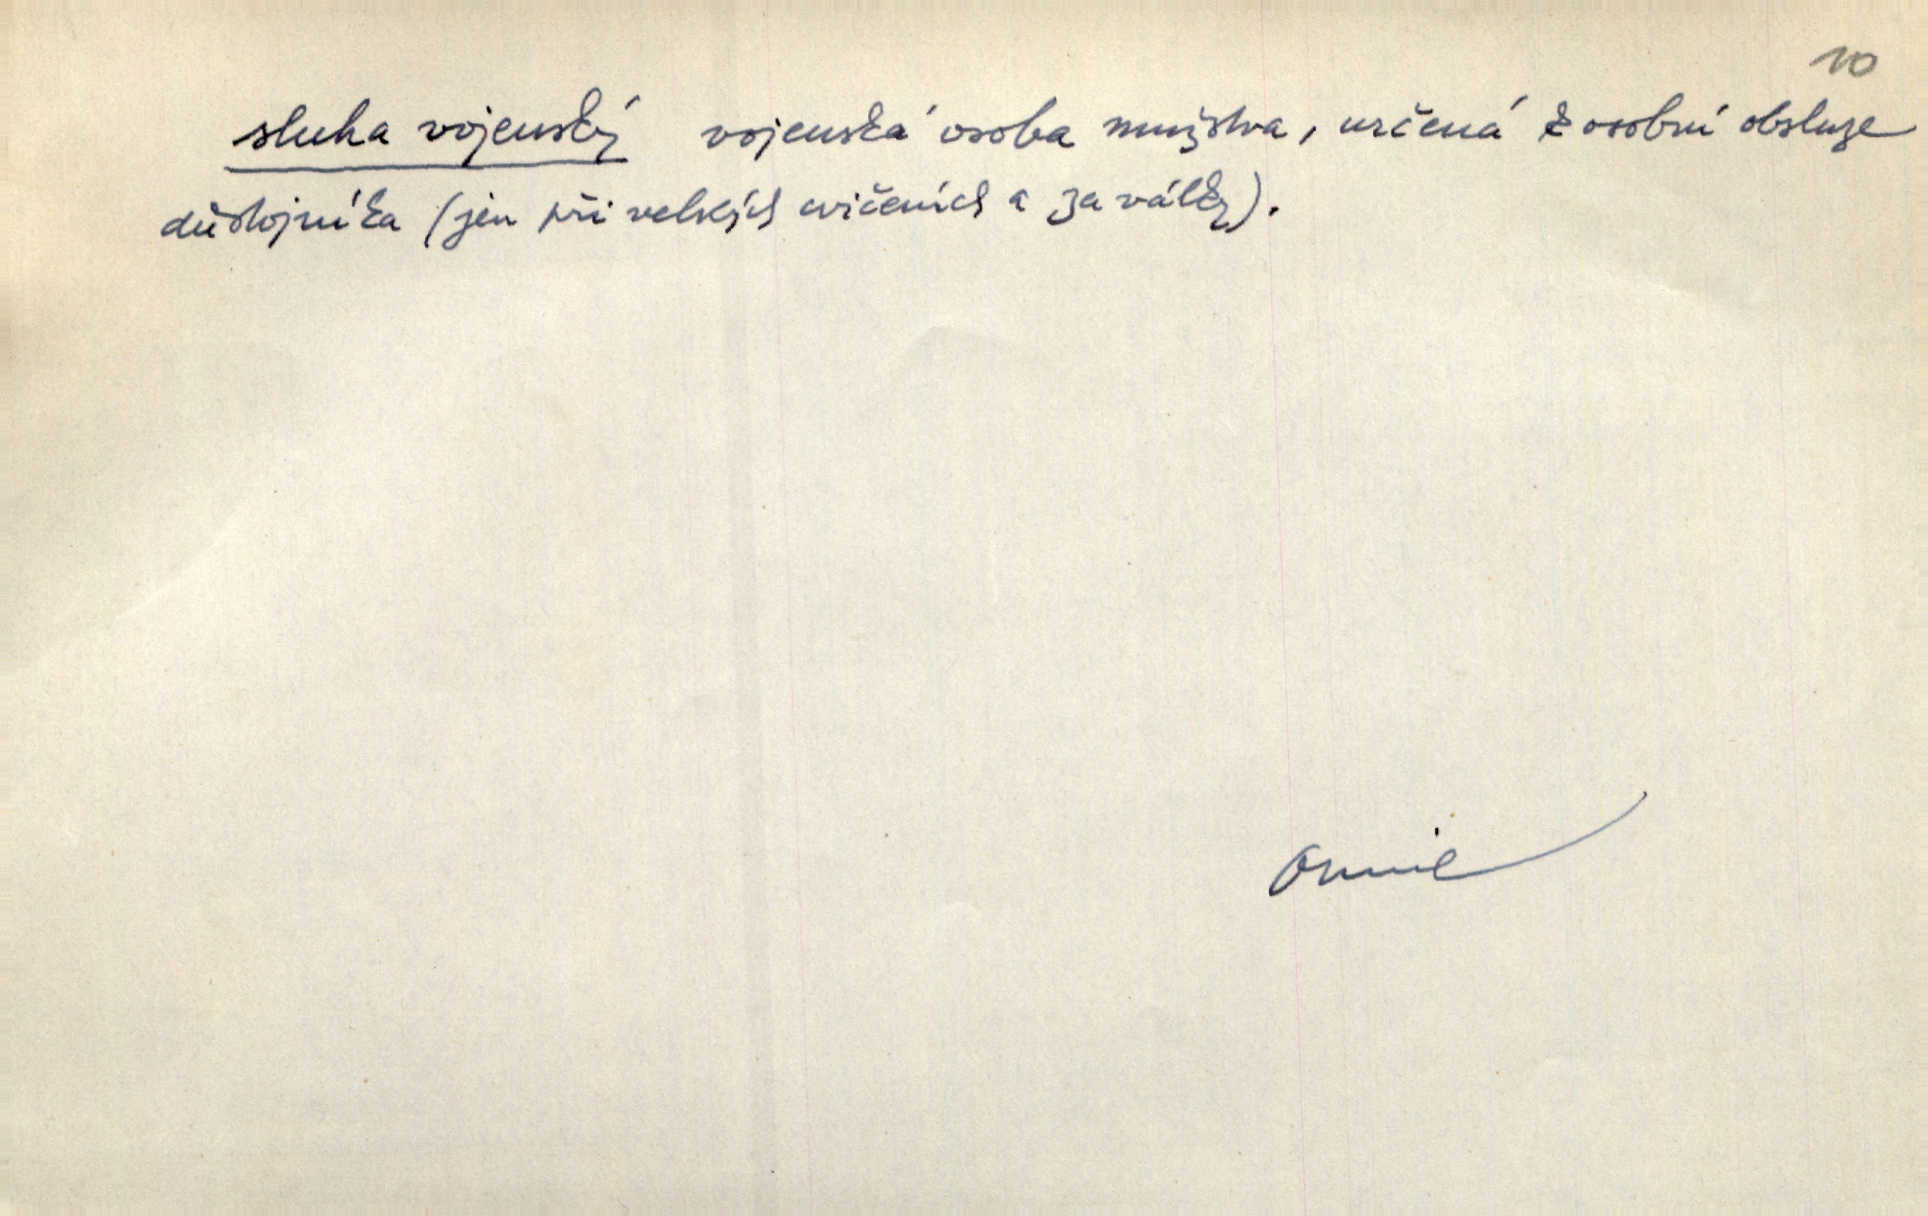 10
sluha vojenský vojenská osoba mužstva, určená k osobní obsluze
důstojníka (jen při velkých cvičeních a za války).